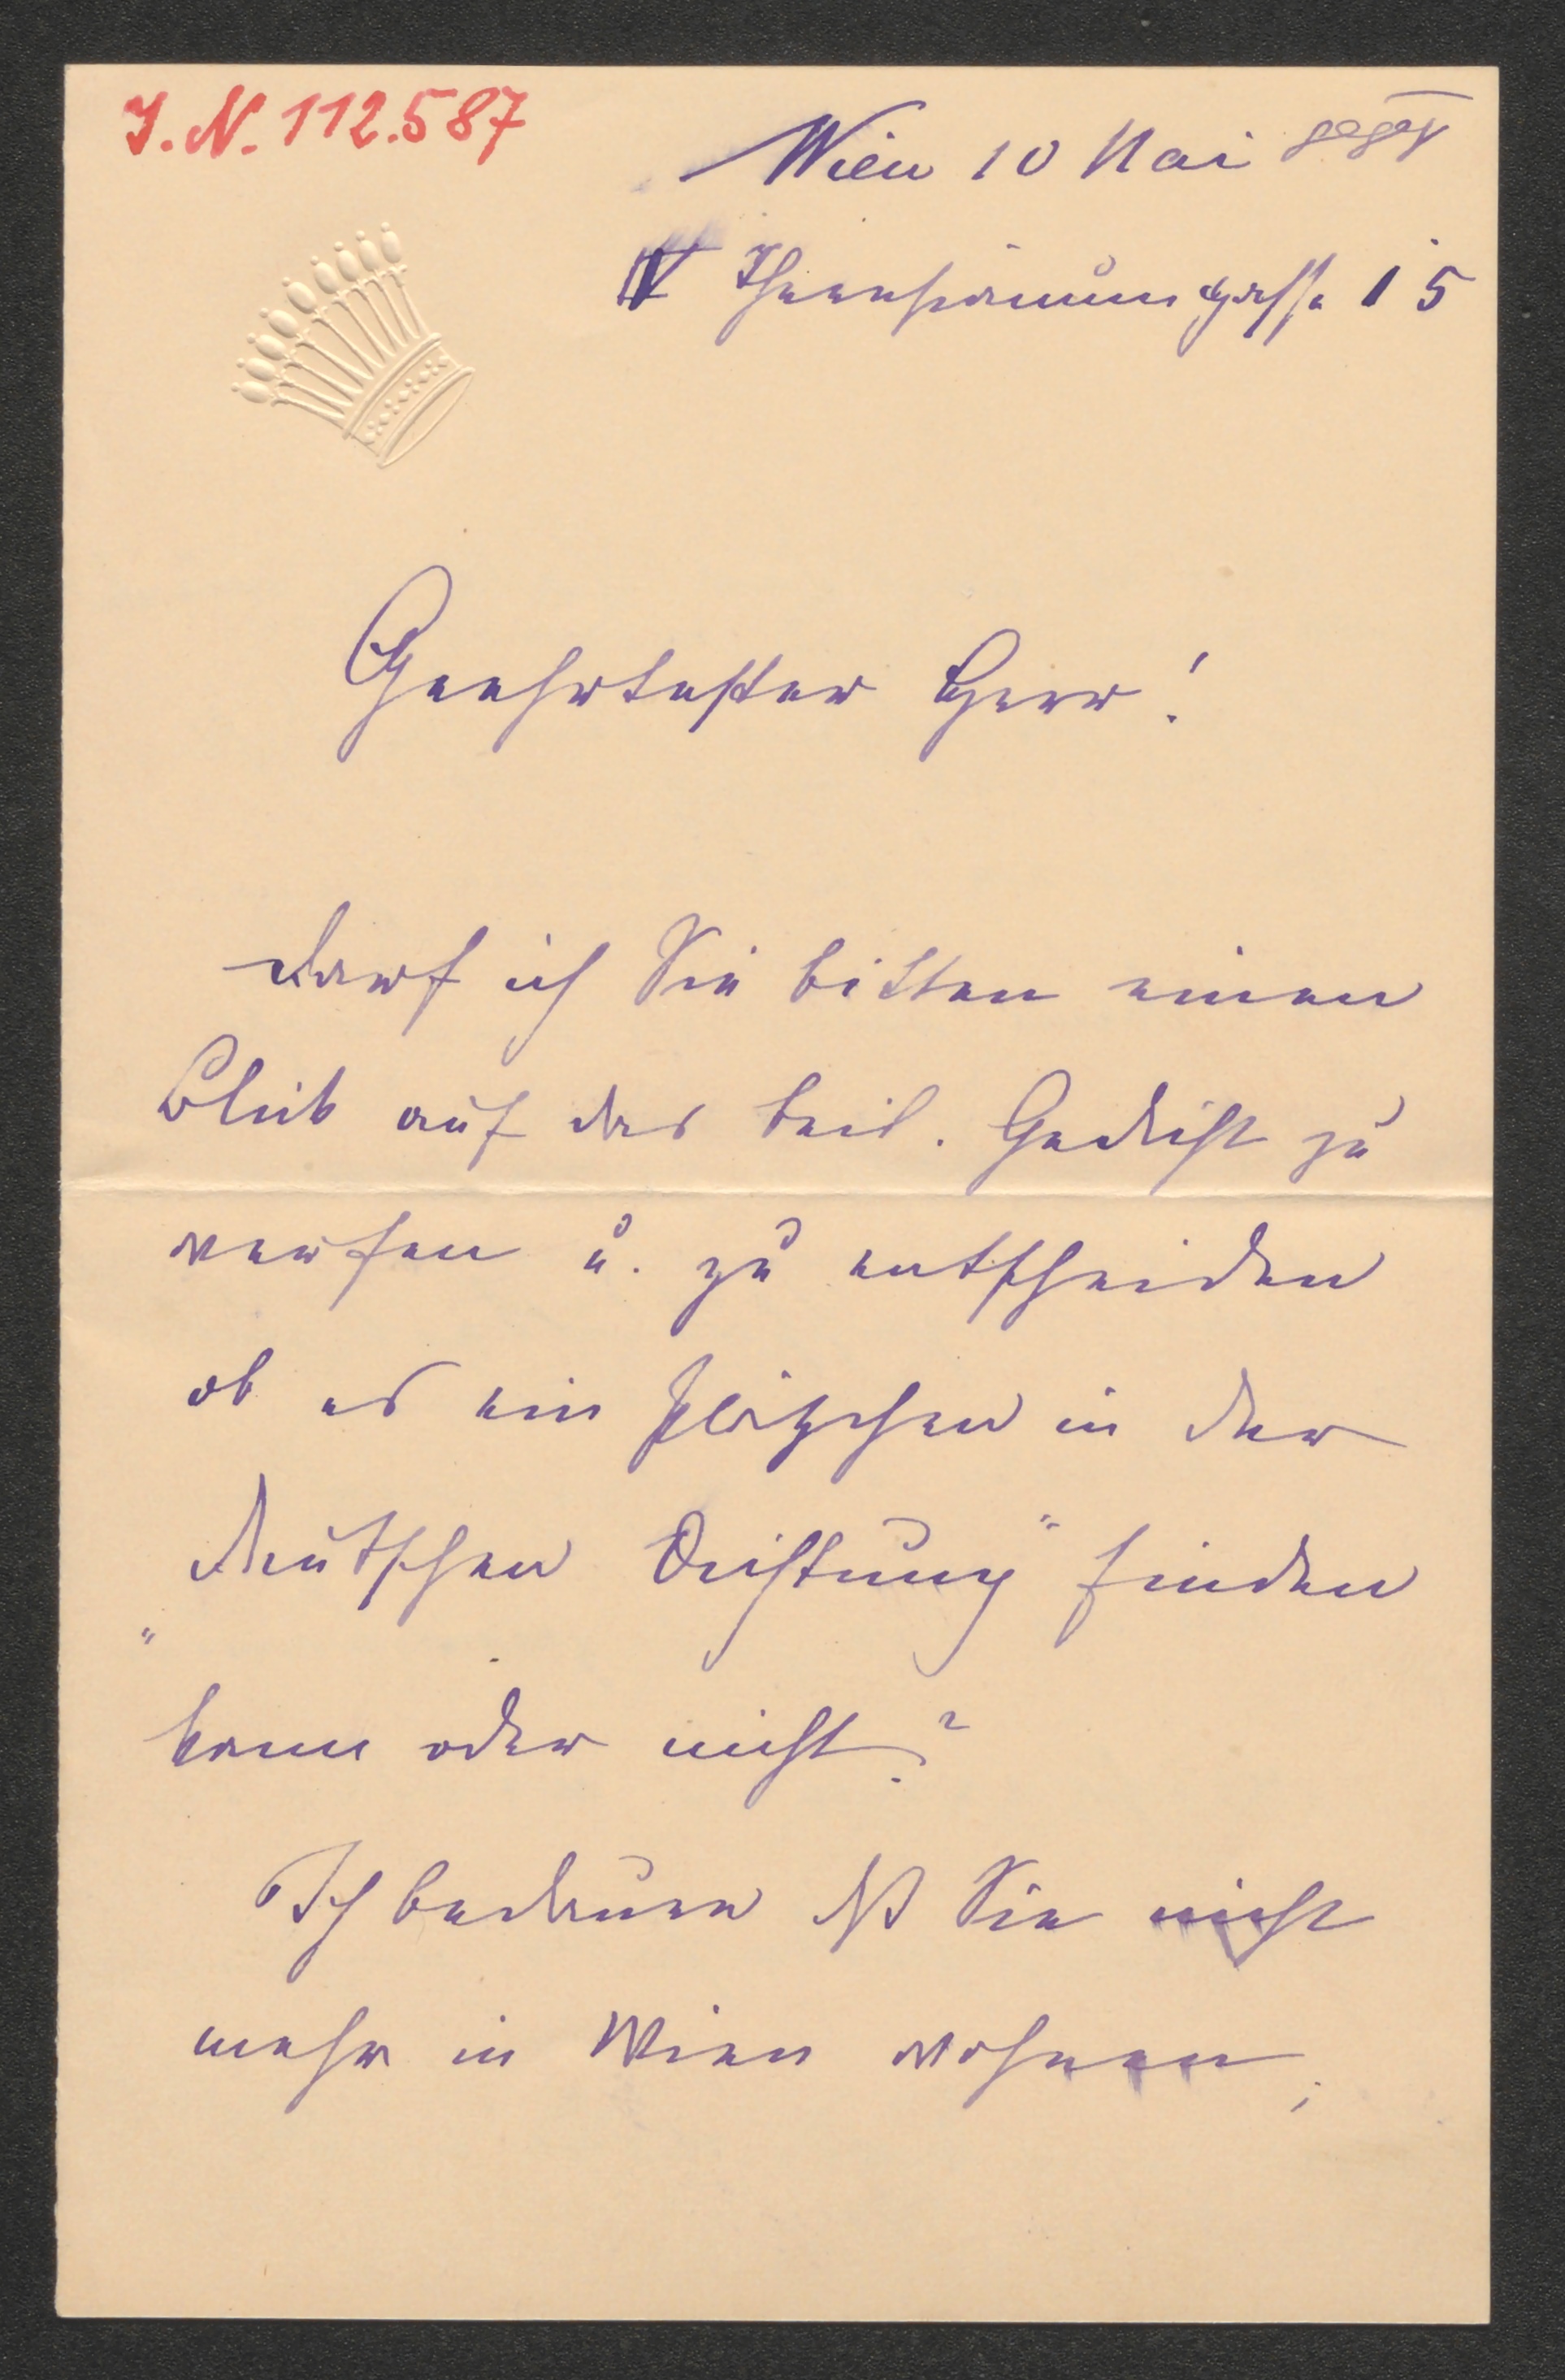 I.N. 112.587
Wien 10 Mai
IV Theresianumgasse 15
Geehrtester Herr!
darf ich Sie bitten einen
Blick auf das beil. Gedicht zu
werfen u. zu entscheiden
ob es ein Plätzchen in der
„deutschen Dichtung" finden
kann oder nicht?
Ich bedaure dß Sie nicht
mehr in Wien wohnen,